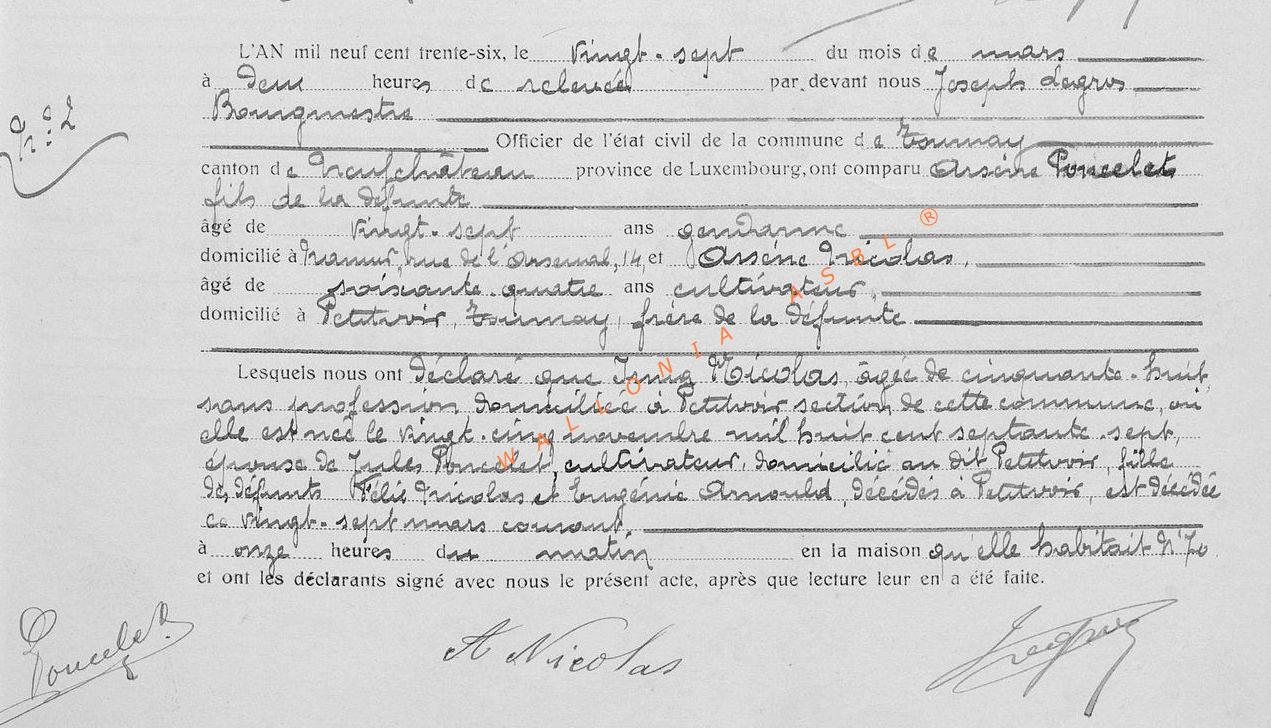 L'AN mil neuf cent trente-six, le vingt-sept du mois de mars
à deux heures de relevée par devant nous Joseph Legros
Bourgmestre
N° 2
Officier de l'état civil de la commune de Tournay
canton de Neufchâteau province de Luxembourg, ont comparu Arsène Poncelet
fils de la défunte
âgé de vingt-sept ans gendarme
domicilié à Namur, rue de l'Arsenal, 14, et Arsène Nicolas,
âgé de soixante-quatre ans cultivateur,
domicilié à Petitvoir, Tournay, frère de la défunte
Lesquels nous ont déclaré que Nicolas, âgée de cinquante-huit,
sans profession domiciliée à Petitvoir section de cette commune, où
elle est née le vingt-cinq novembre mil huit cent septante-sept,
épouse de Jules Poncelet, cultivateur, domicilié au dit Petitvoir, fille
des défunts Félix Nicolas et Eugénie Arnould, décédés à Petitvoir, est décédée
ce vingt-sept mars courant,
à onze heures du matin en la maison qu'elle habitait N° 70
et ont les déclarants signé avec nous le présent acte, après que lecture leur en a été faite.
WALLONIA ASBL ®
Poncelet A Nicolas Legros